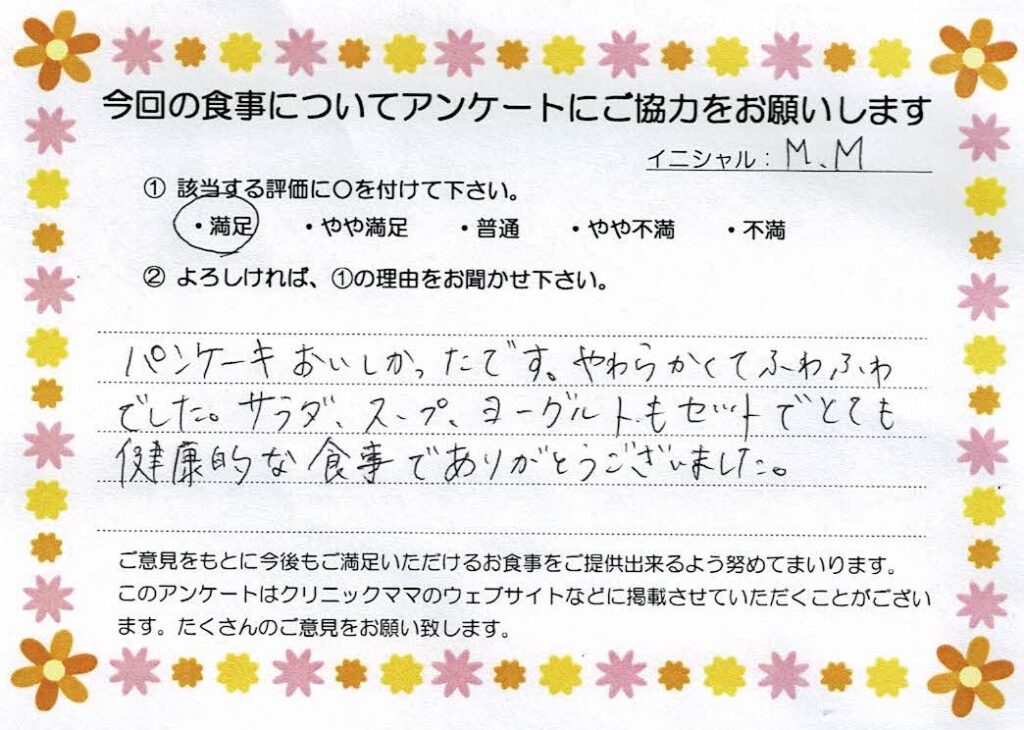 今回の食事についてアンケートにご協力をお願いします
イニシャル：M、M
① 該当する評価に〇を付けて下さい。
・満足 ・やや満足 ・普通 ・やや不満 ・不満
② よろしければ、①の理由をお聞かせ下さい。
パンケーキおいしかったです。やわらかくてふわふわ
でした。サラダ、スープ、ヨーグルトもセットでとても
健康的な食事でありがとうございました。
ご意見をもとに今後もご満足いただけるお食事をご提供出来るよう努めてまいります。
このアンケートはクリニックママのウェブサイトなどに掲載させていただくことがござい
ます。たくさんのご意見をお願い致します。